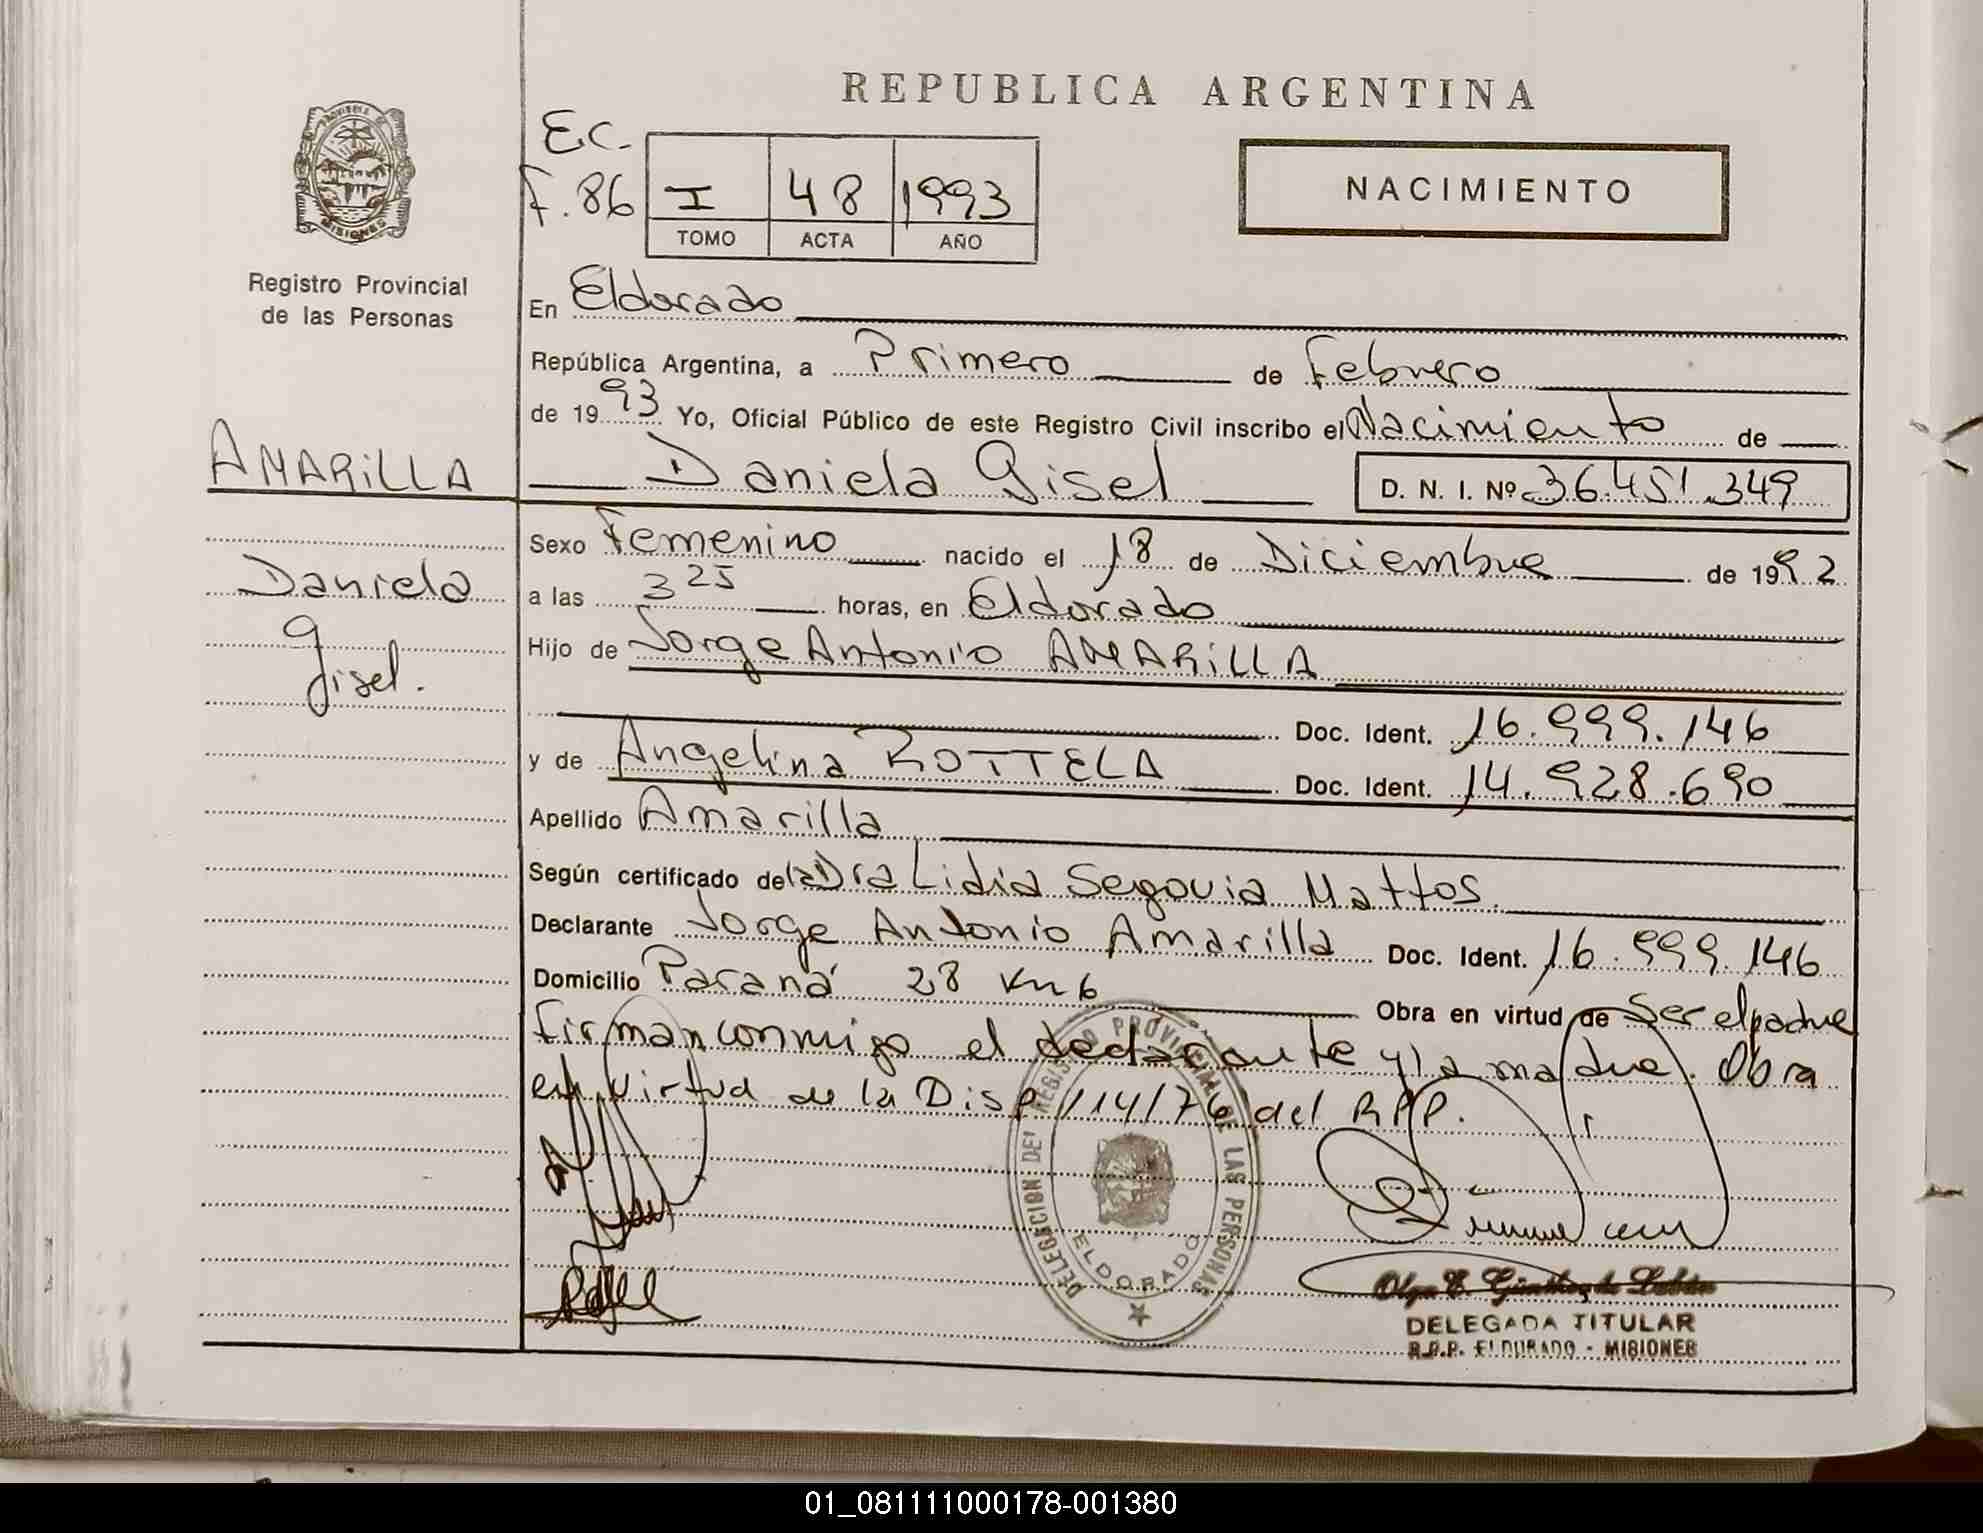 REPUBLICA ARGENTINA
E.C.
F. 86
I 48 1993
TOMO ACTA AÑO
NACIMIENTO
MISIONES
Registro Provincial
de las Personas
AMARILLA
Daniela
Gisel.
En Eldorado
República Argentina, a Primero de Febrero
de 1993 Yo, Oficial Público de este Registro Civil inscribo el Nacimiento de
Daniela Gisel D. N. I. Nº 36.451.349
Sexo Femenino nacido el 18 de Diciembre de 1992
a las 3 25 horas, en Eldorado
Hijo de Jorge Antonio AMARILLA
Doc. Ident. 16.999.146
y de Angelina ROTTELA Doc. Ident. 14.928.690
Apellido Amarilla
Según certificado de la Dra Lidia Segovia Mattos.
Declarante Jorge Antonio Amarilla Doc. Ident. 16.999.146
Domicilio Paraná 28 Km 6 Obra en virtud de Ser el padre
Firman conmigo el declarante y la madre. Obra
en virtud de la Disp 114/76 del RPP.
DELEGACION DEL REGISTRO PROVINCIAL DE LAS PERSONAS
ELDORADO
Olga E.
DELEGADA TITULAR
R.P.P. ELDORADO - MISIONES
01_081111000178-001380